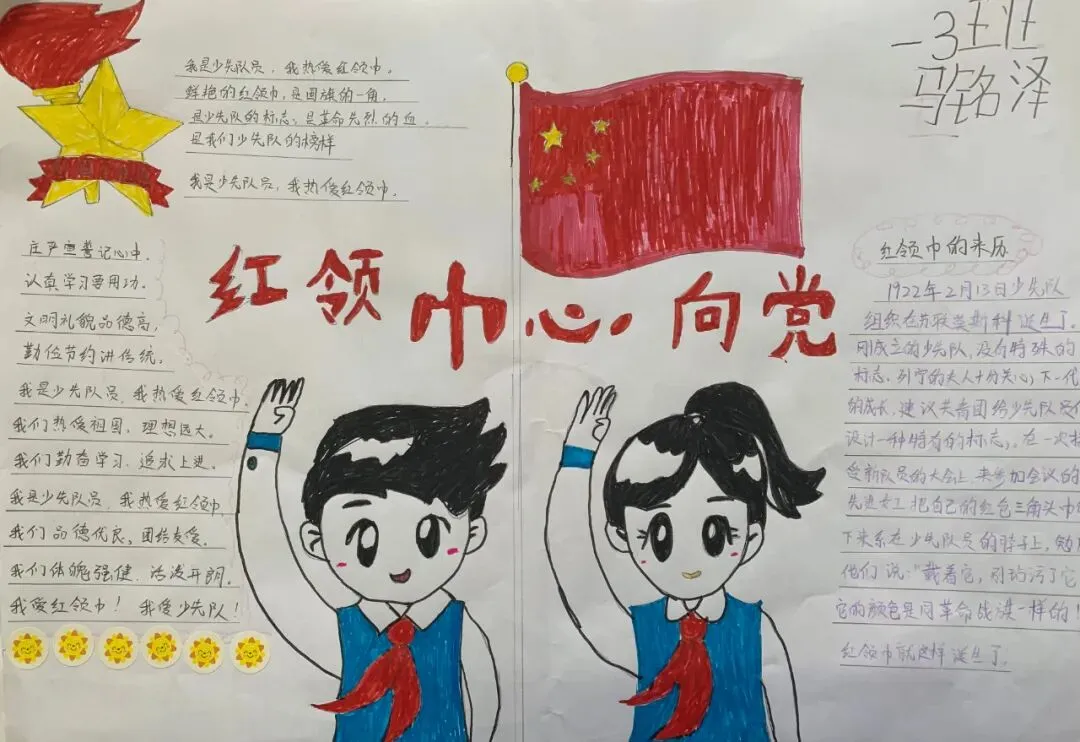 我是少先队员，我热爱红领巾。
鲜艳的红领巾，是国旗的一角，
是少先队的标志，是革命先烈的血。
是我们少先队的榜样
我是少先队员，我热爱红领巾。
一3班
马铭泽
红领巾心向党
庄严宣誓记心中.
认真学习要用功.
文明礼貌品德高，
勤俭节约讲传统.
我是少先队员，我热爱红领巾.
我们热爱祖国，理想远大。
我们勤奋学习.追求上进.
我是少先队员，我热爱红领巾
我们品德优良，团结友爱.
我们体魄强健.活泼开朗.
我爱红领巾！我爱少先队！
红领巾的来历
1922年2月13日少先队
组织在苏联莫斯科诞生了.
刚成立的少先队，没有特殊的
标志.列宁的夫人十分关心下一代
的成长，建议共青团给少先队员们
设计一种特有的标志，在一次接
受新队员的大会上.来参加会议的
先进女工把自己的红色三角头巾
下来系在少先队员的脖子上，勉
他们说："戴着它，别玷污了它
它的颜色是同革命战旗一样的！
红领巾就这样诞生了.